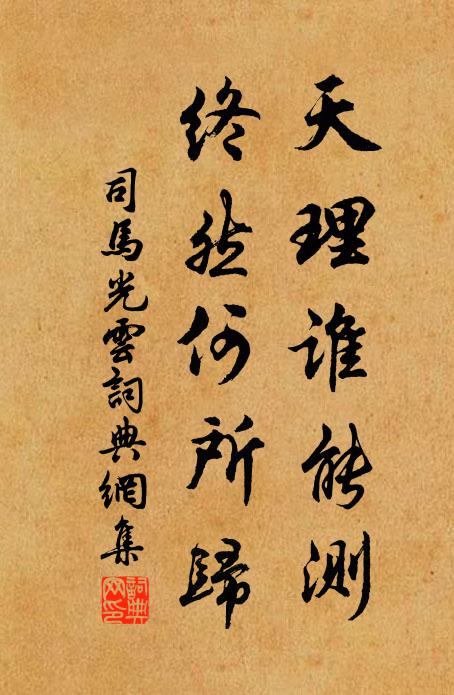 天理誰能測
終然何所歸
司馬光雲詞典網集
詞典網印